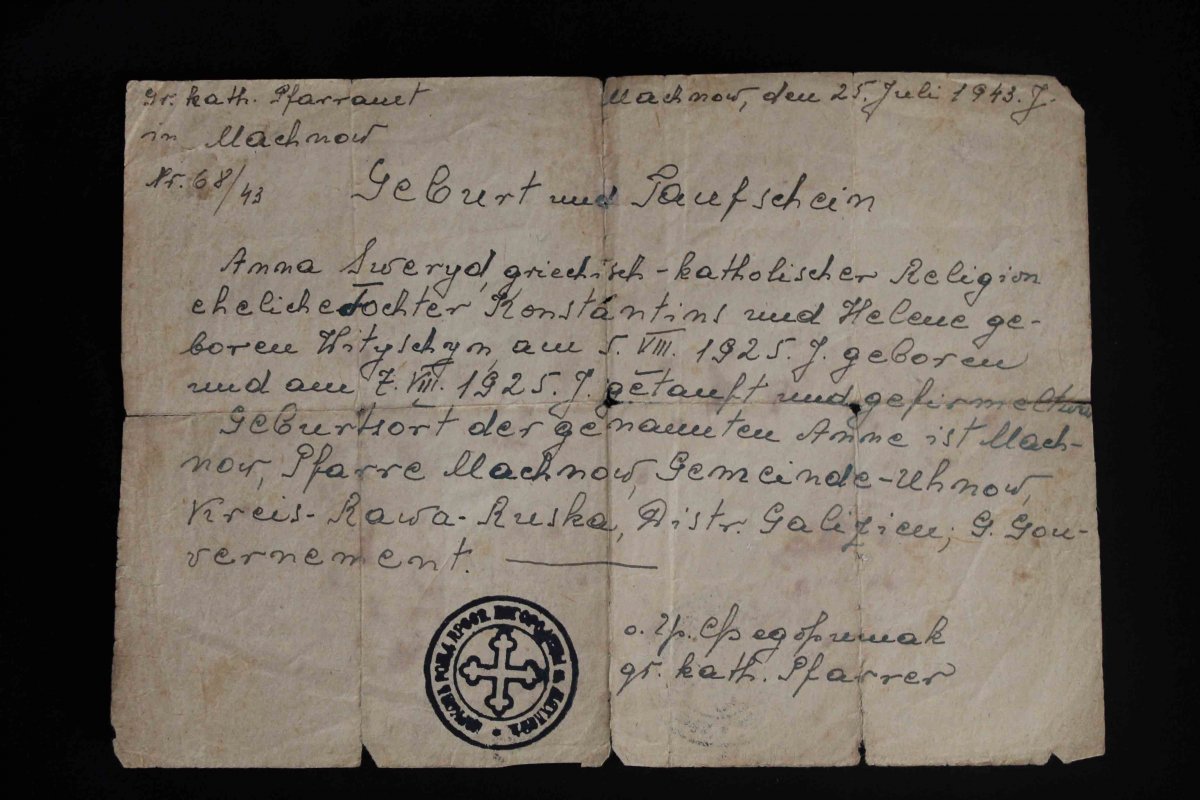 Gr. kath. Pfarramt
Machnow, den 25. Juli 1943. J.
in Machnow
Nr. 68/43
Geburt und Taufschein
Anna Sweryd, griechisch-katholischer Religion
eheliche Tochter Konstantins und Helene ge-
boren Hityschyn, am 5. VIII. 1925. J. geboren
und am 7. VIII. 1925. J. getauft und gefirmelt
Geburtsort der genannten Anne ist Mach-
now, Pfarre Machnow, Gemeinde-Uhnow,
Kreis-Rawa-Ruska, Distr. Galizien; G. Gou-
vernement.
о. Гр. Федоришак
gr. kath. Pfarrer